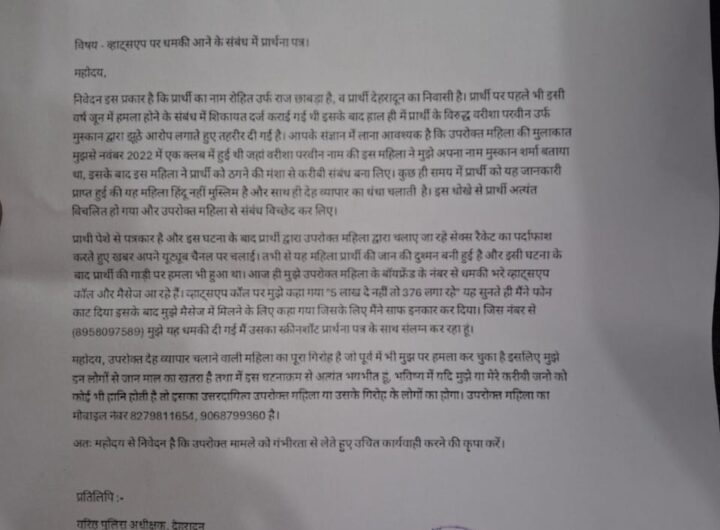 विषय - व्हाट्सएप पर धमकी आने के संबंध में प्रार्थना पत्र।
महोदय,
निवेदन इस प्रकार है कि प्रार्थी का नाम रोहित उर्फ राज छाबड़ा है, व प्रार्थी देहरादून का निवासी है। प्रार्थी पर पहले भी इसी
वर्ष जून में हमला होने के संबंध में शिकायत दर्ज कराई गई थी इसके बाद हाल ही में प्रार्थी के विरुद्ध वरीशा परवीन उर्फ
मुस्कान द्वारा झूठे आरोप लगाते हुए तहरीर दी गई है। आपके संज्ञान में लाना आवश्यक है कि उपरोक्त महिला की मुलाकात
मुझसे नवंबर 2022 में एक क्लब में हुई थी जहां वरीशा परवीन नाम की इस महिला ने मुझे अपना नाम मुस्कान शर्मा बताया
था, इसके बाद इस महिला ने प्रार्थी को ठगने की मंशा से करीबी संबंध बना लिए। कुछ ही समय में प्रार्थी को यह जानकारी
प्राप्त हुई की यह महिला हिंदू नहीं मुस्लिम है और साथ ही देह व्यापार का धंधा चलाती है। इस धोखे से प्रार्थी अत्यंत
विचलित हो गया और उपरोक्त महिला से संबंध विच्छेद कर लिए।
प्रार्थी पेशे से पत्रकार है और इस घटना के बाद प्रार्थी द्वारा उपरोक्त महिला द्वारा चलाए जा रहे सेक्स रैकेट का पर्दाफाश
करते हुए खबर अपने यूट्यूब चैनल पर चलाई। तभी से यह महिला प्रार्थी की जान की दुश्मन बनी हुई है और इसी घटना के
बाद प्रार्थी की गाड़ी पर हमला भी हुआ था। आज ही मुझे उपरोक्त महिला के बॉयफ्रेंड के नंबर से धमकी भरे व्हाट्सएप
कॉल और मैसेज आ रहे हैं। व्हाट्सएप कॉल पर मुझे कहा गया "5 लाख दे नहीं तो 376 लगा रहे" यह सुनते ही मैंने फोन
काट दिया इसके बाद मुझे मैसेज में मिलने के लिए कहा गया जिसके लिए मैंने साफ इनकार कर दिया। जिस नंबर से
(8958097589) मुझे यह धमकी दी गई मैं उसका स्क्रीनशॉट प्रार्थना पत्र के साथ संलग्न कर रहा हूं।
महोदय, उपरोक्त देह व्यापार चलाने वाली महिला का पूरा गिरोह है जो पूर्व में भी मुझ पर हमला कर चुका है इसलिए मुझे
इन लोगों से जान माल का खतरा है तथा में इस घटनाक्रम से अत्यंत भयभीत हूं, भविष्य में यदि मुझे या मेरे करीबी जनो को
कोई भी हानि होती है तो इसका उत्तरदायित्व उपरोक्त महिला या उसके गिरोह के लोगों का होगा। उपरोक्त महिला का
मोबाइल नंबर 8279811654, 9068799360 है।
अतः महोदय से निवेदन है कि उपरोक्त मामले को गंभीरता से लेते हुए उचित कार्यवाही करने की कृपा करें।
प्रतिलिपि :-
वरिष्ठ पुलिस अधीक्षक, देहरादून